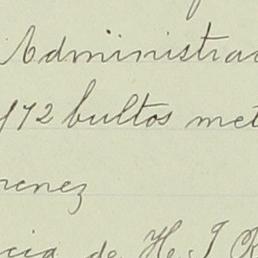 Administrac
172 bultos met
menez
cia de H. J. R